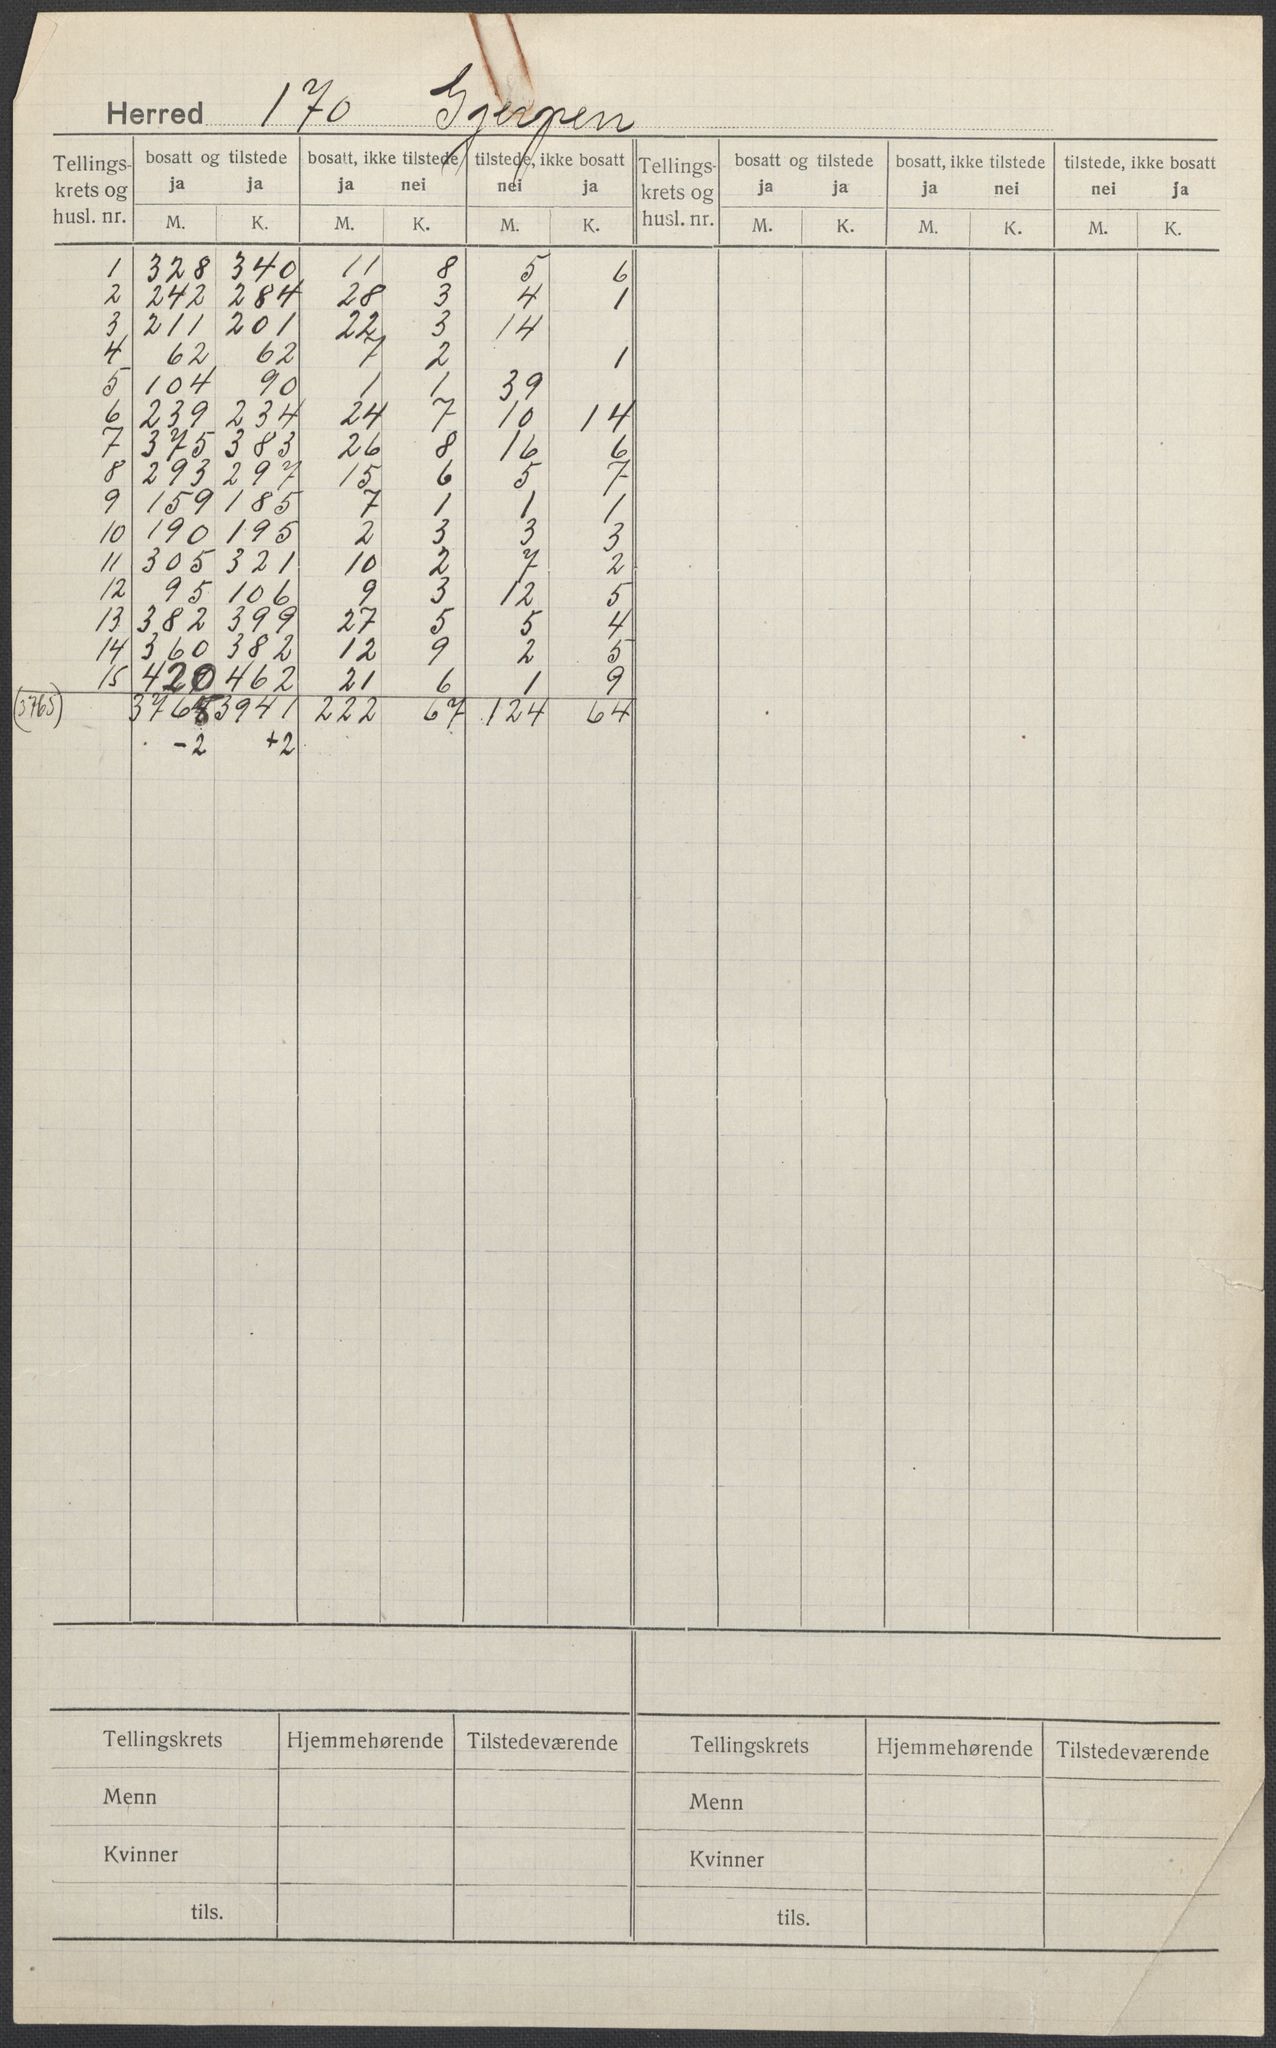 Herred 170 Gjerpen
Tellings- krets og husl. nr. | bosatt og tilstede ja ja | bosatt, ikke tilstede ja nei | tilstede, ikke bosatt nei ja | Tellings- krets og husl. nr. | bosatt og tilstede ja ja | bosatt, ikke tilstede ja nei | tilstede, ikke bosatt nei ja
M. K. M. K. M. K. M. K. M. K. M. K.
1 328 340 11 8 5 6
2 242 284 28 3 4 1
3 211 201 22 3 14
4 62 62 7 2 1
5 104 90 1 1 39
6 239 234 24 7 10 14
7 375 383 26 8 16 6
8 293 297 15 6 5 7
9 159 185 7 1 1 1
10 190 195 2 3 3 3
11 305 321 10 2 7 2
12 95 106 9 3 12 5
13 382 399 27 5 5 4
14 360 382 12 9 2 5
15 420 462 21 6 1 9
(3765) 3765 3941 222 67 124 64
-2 +2
Tellingskrets Hjemmehørende Tilstedeværende Tellingskrets Hjemmehørende Tilstedeværende
Menn Menn
Kvinner Kvinner
tils. tils.